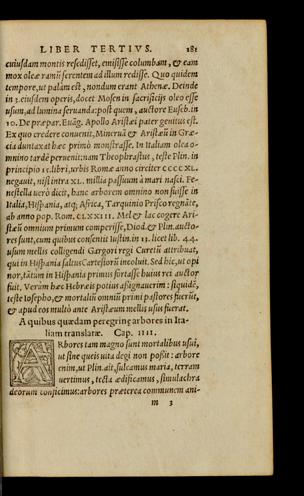 LIBER TERTIVS. 181
cuiusdam montis resedisset, emisisse columbam, & eam
mox oleæ ramũ ferentem ad illum redisse. Quo quidem
tempore, ut palàm est, nondum erant Athenæ. Deinde
in 3. eiusdem operis, docet Mosen in sacrificijs oleo esse
usum, ad lumina seruanda: post quem, auctore Euseb. in
10. De præpar. Euãg. Apollo Aristæi pater genitus est.
Ex quo credere conuenit, Mineruã & Aristæũ in Græ-
cia duntaxat hæc primò monstrasse. In Italiam olea o-
mnino tardè peruenit: nam Theophrastus, teste Plin. in
principio 15. libri, urbis Romæ anno circiter CCCC XL.
negauit, nisi intra XL. millia passuum à mari nasci. Fe-
nestella uerò dicit, hanc arborem omnino non fuisse in
Italia, Hispania, atq; Africa, Tarquinio Prisco regnãte,
ab anno pop. Rom. CLXXIII. Mel & lac cogere Ari-
stæũ omnium primum comperisse, Diod. & Plin. aucto-
res sunt, cum quibus consentit Iustin. in 13. licet lib. 44.
usum mellis colligendi Gargori regi Curetũ attribuat,
qui in Hispania saltus Cartesiorũ incoluit. Sed hic, ut opi
nor, tãtum in Hispania primus fortasse huius rei auctor
fuit. Verùm hæc Hebræis potius assignauerim: siquidẽ,
teste Iosepho, & mortaliũ omniũ primi pastores fuerũt,
& apud eos multò ante Aristæum mellis usus fuerat.
A quibus quædam peregrinę arbores in Ita-
liam translatæ. Cap. IIII.
ARbores tam magno sunt mortalibus usui,
ut sine queis uita degi non possit: arbore
enim, ut Plin. ait, sulcamus maria, terram
uertimus, tecta ædificamus, simulachra
deorum conficimus: arbores præterea communem ani-
m 3